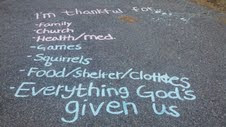 I'm thankful for...
-Family
-Church
-Health/med.
-Games
-Squirrels
-Food/shelter/clothes
-Everything God's
given us